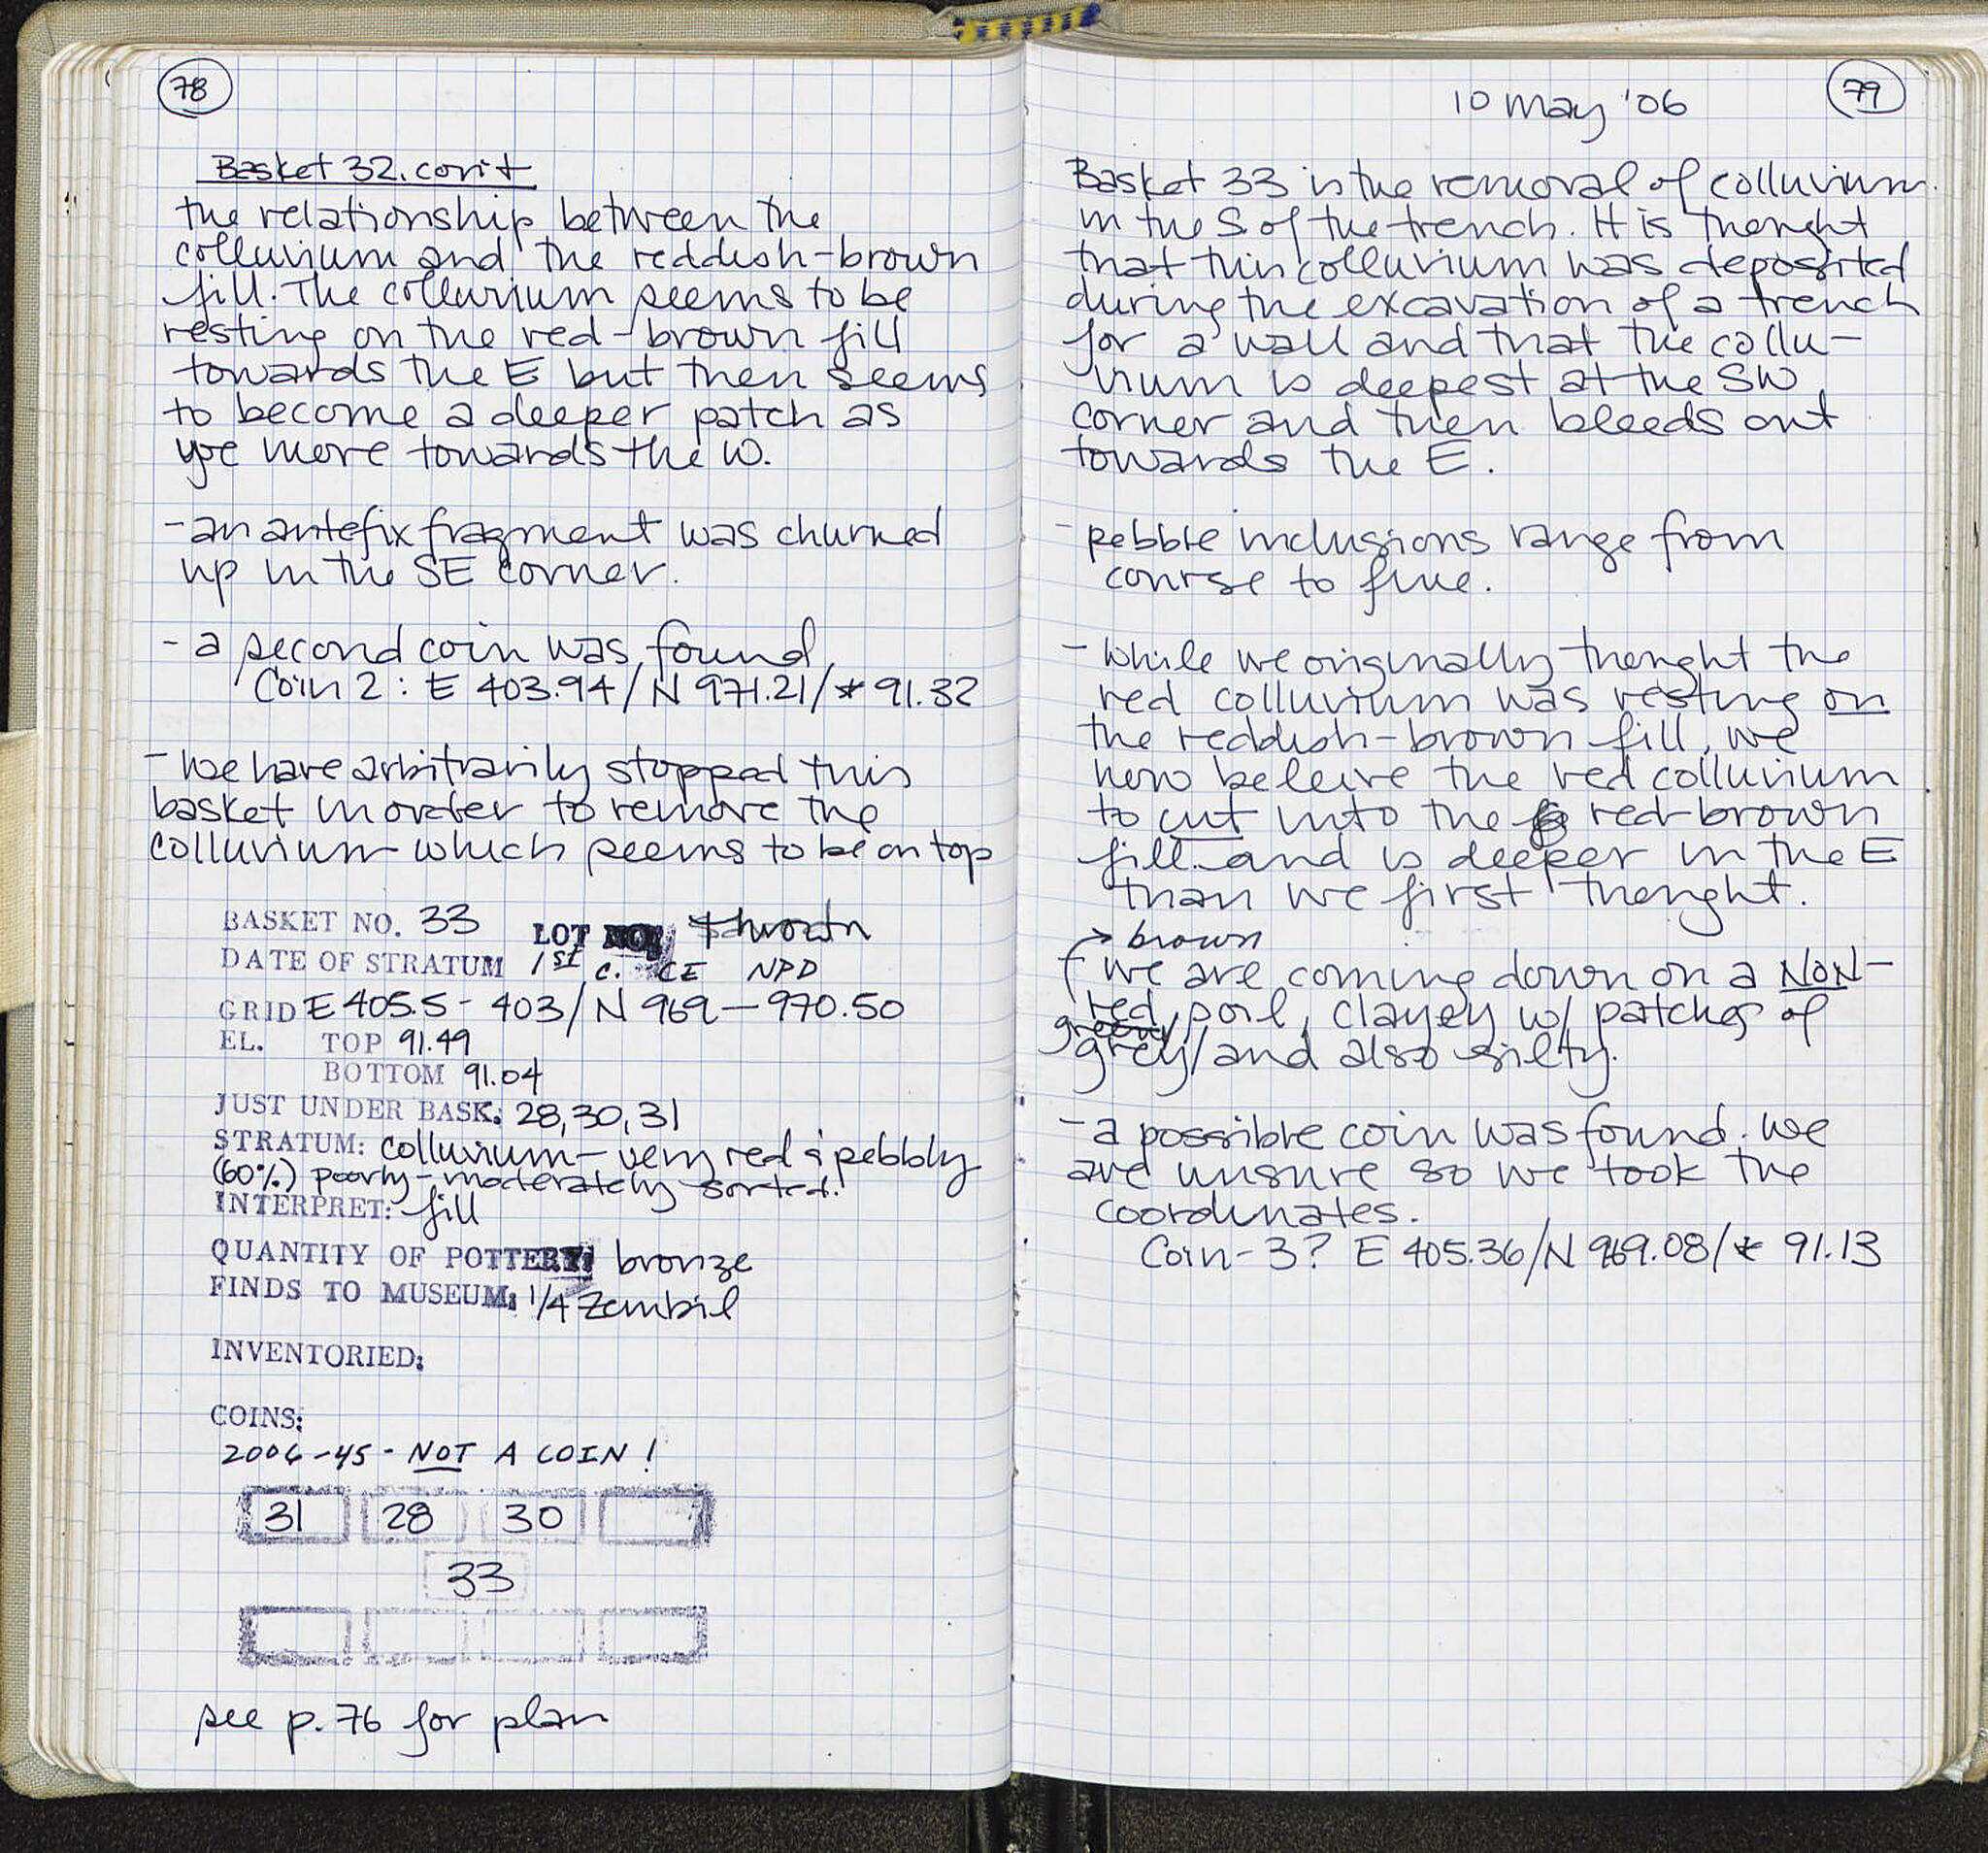 78
Basket 32. con't
the relationship between the
colluvium and the reddish-brown
fill. The colluvium seems to be
resting on the red-brown fill
towards the E but then seems
to become a deeper patch as
you move towards the W.
- an antefix fragment was churned
up in the SE corner.
- a second coin was found
Coin 2 : E 403.94/N 971.21/* 91.32
- We have arbitrarily stopped this
basket in order to remove the
colluvium which seems to be on top
BASKET NO. 33 LOT NO.
DATE OF STRATUM 1st c. CE NPD
GRID E 405.5 - 403/N 969 - 970.50
EL. TOP 91.49
BOTTOM 91.04
JUST UNDER BASK: 28, 30, 31
STRATUM: colluvium - very red & pebbly
(60%) poorly - moderately sorted.
INTERPRET: fill
QUANTITY OF POTTERY: bronze
FINDS TO MUSEUM: 1/4 zembil
INVENTORIED:
COINS:
2006-45 - NOT A COIN!
31 28 30
33
see p. 76 for plan
10 May '06 79
Basket 33 is the removal of colluvium
in the S of the trench. It is thought
that this colluvium was deposited
during the excavation of a trench
for a wall and that the collu-
vium is deepest at the SW
corner and then bleeds out
towards the E.
- pebble inclusions range from
course to fine.
- While we originally thought the
red colluvium was resting on
the reddish-brown fill, we
now beleive the red colluvium
to cut into the red-brown
fill and is deeper in the E
than we first thought.
→ brown
- we are coming down on a NON-
red soil, clayey w/ patches of
grey/and also silty.
- a possible coin was found. We
are unsure so we took the
coordinates.
Coin-3? E 405.36/N 969.08/* 91.13